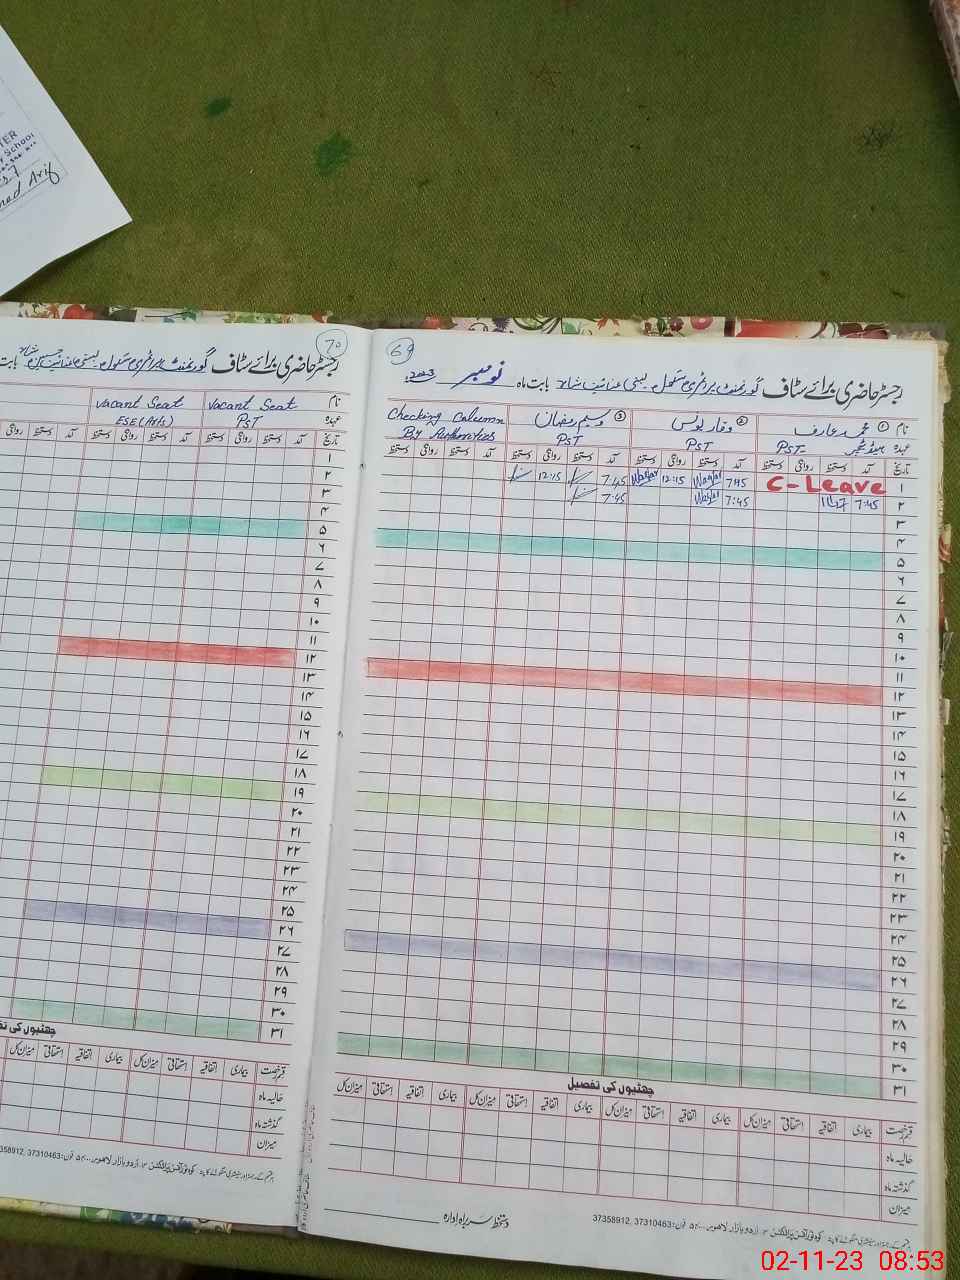 TER
y School
ad Arif
70
رجسٹر حاضری برائے سٹاف گورنمنٹ پرائمری سکول بستی
بابت
نام
Vacant Seat
Vacant Seat
عہدہ
PST
ESE (Arts)
تاریخ آمد دستخط روانگی دستخط آمد دستخط روانگی دستخط آمد دستخط
۱
۲
۳
۴
۵
۶
۷
۸
۹
۱۰
۱۱
۱۲
۱۳
۱۴
۱۵
۱۶
۱۷
۱۸
۱۹
۲۰
۲۱
۲۲
۲۳
۲۴
۲۵
۲۶
۲۷
۲۸
۲۹
۳۰
۳۱
چھٹیوں کی تف
قسم رخصت بیماری اتفاقیہ استحقاقی میزان کل بیماری اتفاقیہ استحقاقی میزان کل
حالیہ ماہ
گذشتہ ماہ
میزان
37358912, 37310463
69
رجسٹر حاضری برائے سٹاف گورنمنٹ پرائمری سکول بستی عنائیت شاہ بابت ماہ نومبر 2023ء
نام ① محمد عارف ② وقار یونس ③ وسیم رمضان Checking Column
عہدہ ہیڈ ٹیچر PST PST PST By Authorities
تاریخ آمد دستخط روانگی دستخط آمد دستخط روانگی دستخط آمد دستخط روانگی دستخط آمد دستخط روانگی دستخط
۱ C-Leave 7:45 Waqar 12:15 Waqar 7:45 12:15
۲ 7:45 7:45 Waqar 7:45
۳
۴
۵
۶
۷
۸
۹
۱۰
۱۱
۱۲
۱۳
۱۴
۱۵
۱۶
۱۷
۱۸
۱۹
۲۰
۲۱
۲۲
۲۳
۲۴
۲۵
۲۶
۲۷
۲۸
۲۹
۳۰
۳۱
چھٹیوں کی تفصیل
قسم رخصت بیماری اتفاقیہ استحقاقی میزان کل بیماری اتفاقیہ استحقاقی میزان کل بیماری اتفاقیہ استحقاقی میزان کل
حالیہ ماہ
گذشتہ ماہ
میزان
دستخط سربراہ ادارہ
اردو بازار لاہور فون: 37310463, 37358912
02-11-23 08:53